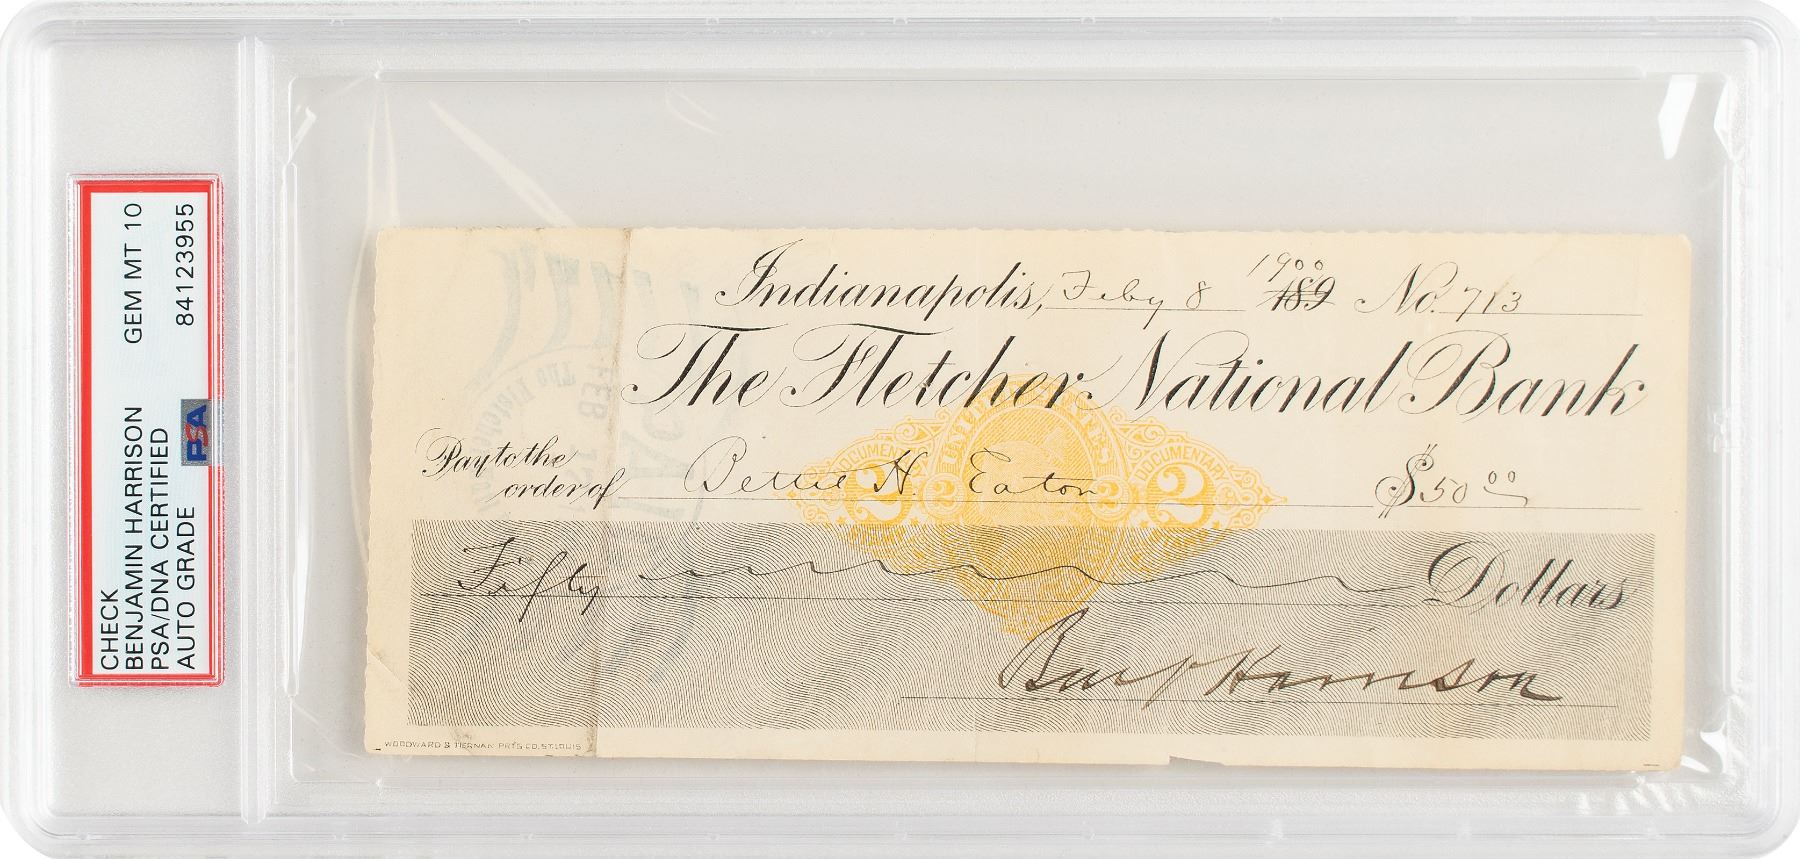 CHECK GEM MT 10
BENJAMIN HARRISON
PSA/DNA CERTIFIED 84123955
AUTO GRADE
PSA
1900
Indianapolis, Feby 8 189 No. 713
The Fletcher National Bank
Pay to the
order of Bettie H. Eaton $50 00
UNITED STATES
DOCUMENTARY DOCUMENTARY
2 2 2 2
STAMP
Fifty Dollars
Benj Harrison
WOODWARD & TIERNAN PRT'G CO. ST. LOUIS
FEB